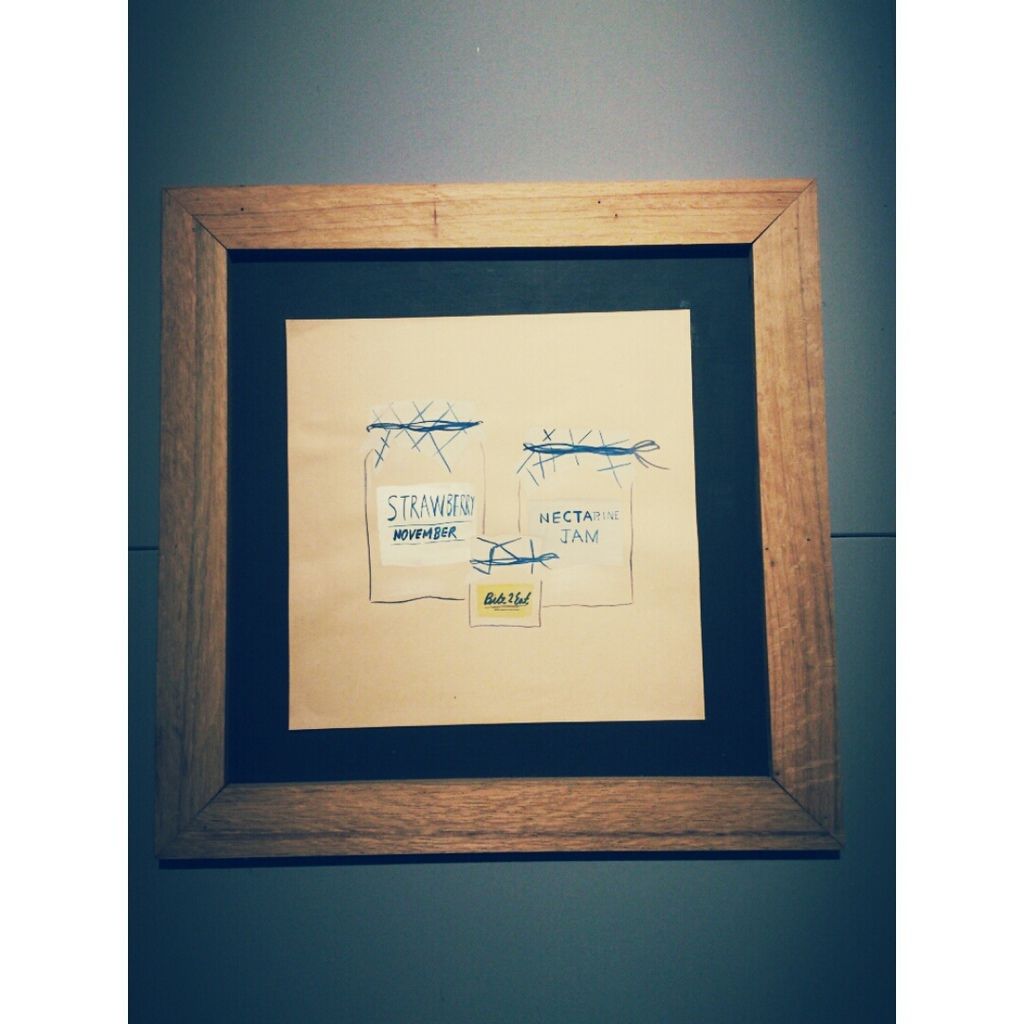 STRAWBERRY
NOVEMBER
NECTARINE
JAM
Bite 2 Eat